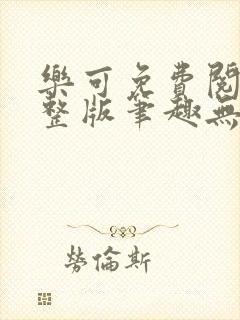 樂可免費閱
整版筆趣無
勞倫斯